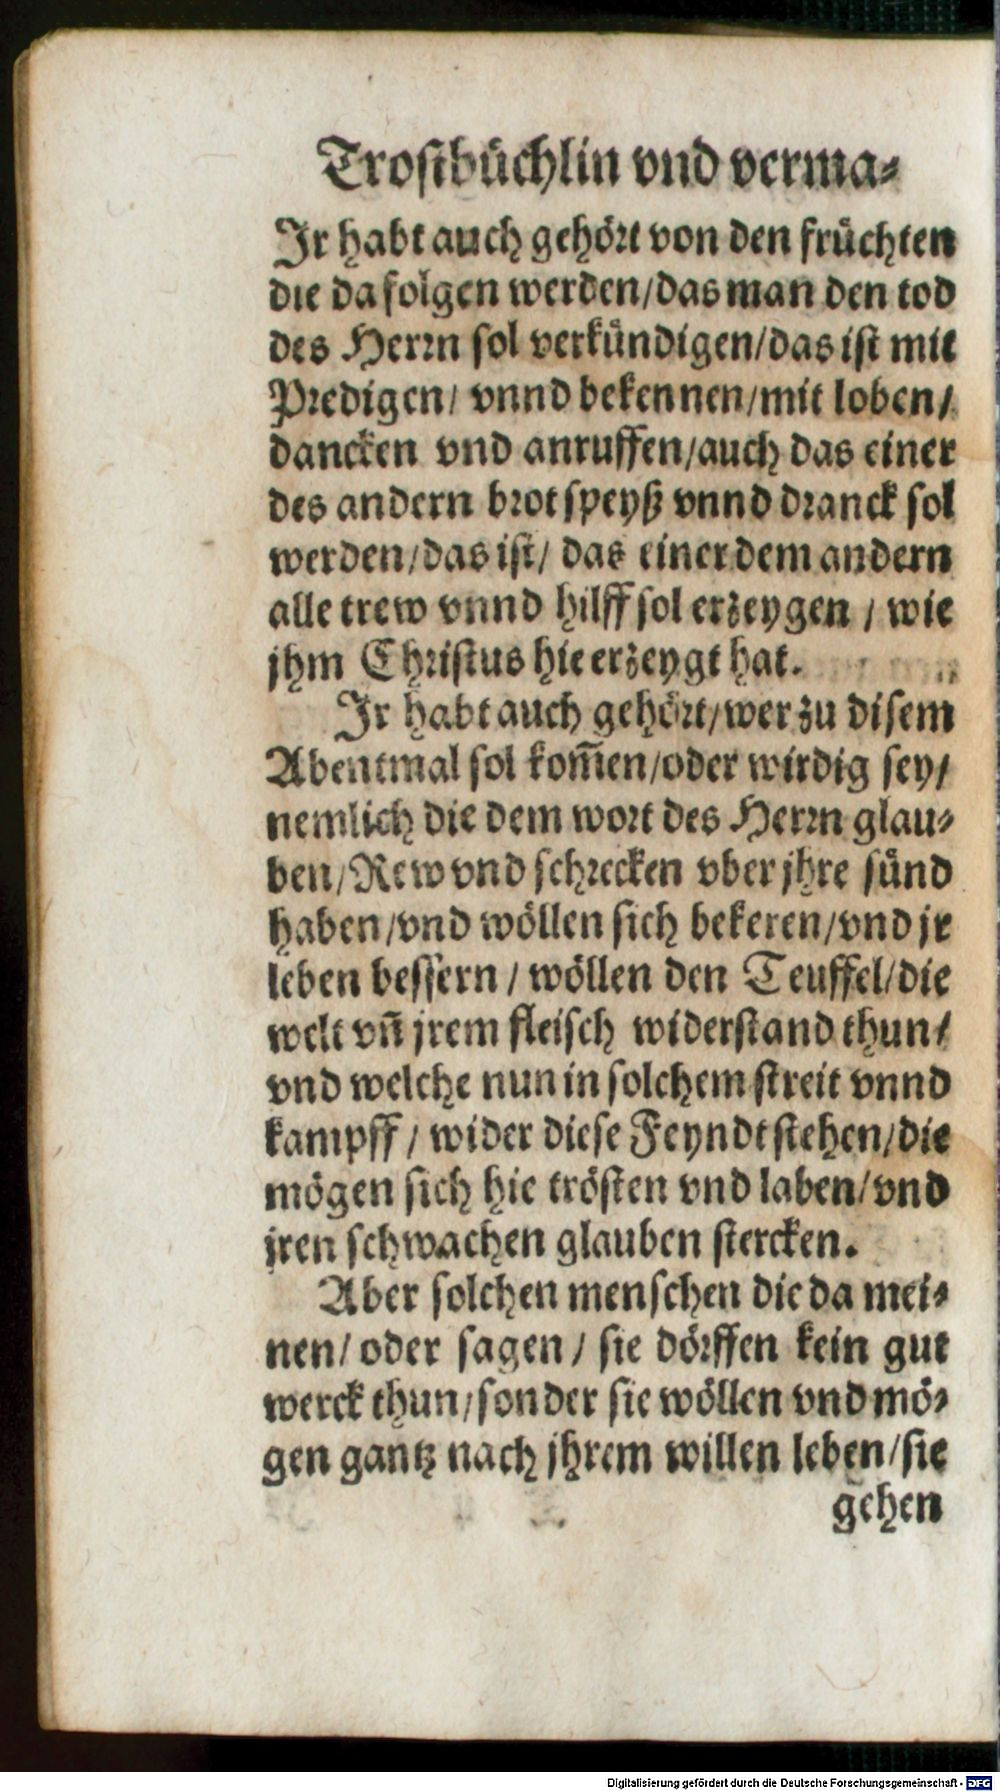 Trostbüchlin vnd verma-
Ir habt auch gehört von den früchten
die da folgen werden/das man den tod
des Herrn sol verkündigen/das ist mit
Predigen/ vnnd bekennen/mit loben/
dancken vnd anruffen/auch das einer
des andern brot speyß vnnd dranck sol
werden/das ist/ das einer dem andern
alle trew vnnd hilff sol erzeygen / wie
jhm Christus hie erzeygt hat.
Ir habt auch gehört/wer zu disem
Abentmal sol kom̃en/oder wirdig sey/
nemlich die dem wort des Herrn glau-
ben/Rew vnd schrecken vber jhre sünd
haben/vnd wöllen sich bekeren/vnd jr
leben bessern / wöllen den Teuffel/die
welt vñ jrem fleisch widerstand thun/
vnd welche nun in solchem streit vnnd
kampff / wider diese Feyndt stehen/die
mögen sich hie trösten vnd laben/vnd
jren schwachen glauben stercken.
Aber solchen menschen die da mei-
nen/ oder sagen / sie dörffen kein gut
werck thun/sonder sie wöllen vnd mö-
gen gantz nach jhrem willen leben/sie
gehen
Digitalisierung gefördert durch die Deutsche Forschungsgemeinschaft - DFG